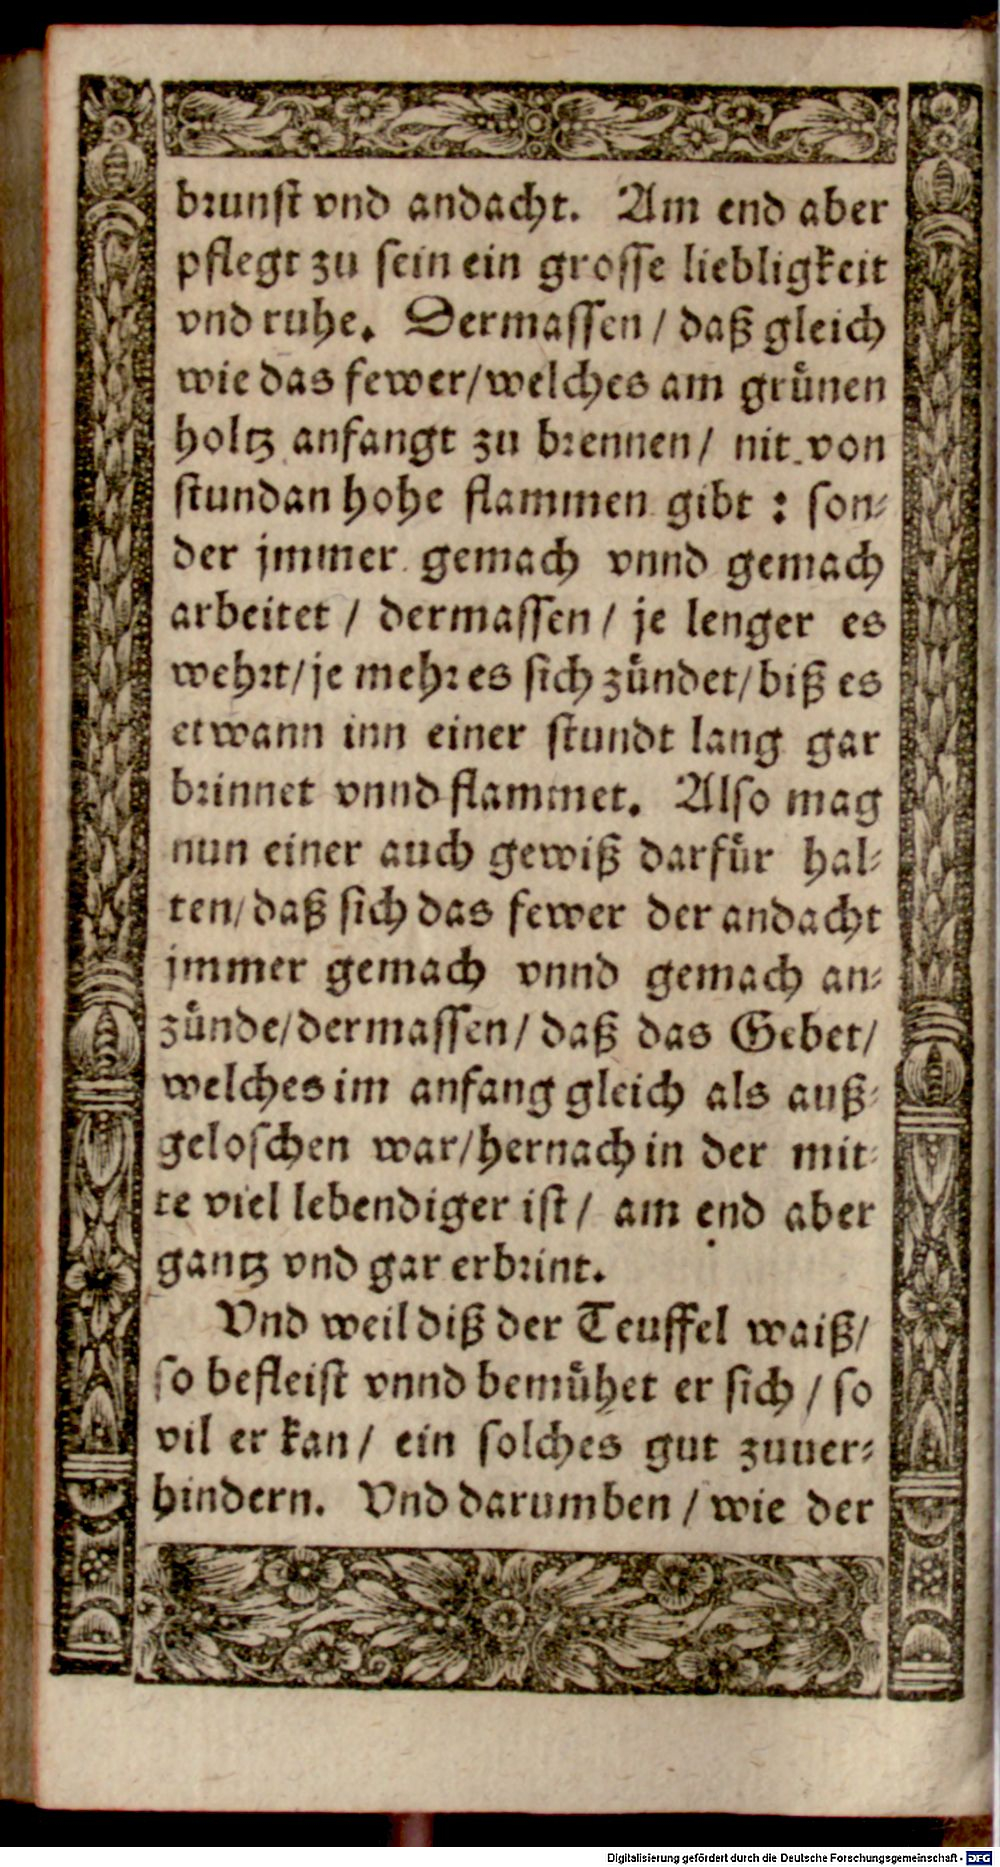 brunst vnd andacht. Am end aber
pflegt zu sein ein grosse liebligkeit
vnd ruhe. Dermassen / daß gleich
wie das fewer/welches am grünen
holtz anfangt zu brennen / nit von
stundan hohe flammen gibt : son-
der jmmer gemach vnnd gemach
arbeitet / dermassen / je lenger es
wehrt/je mehr es sich zündet/biß es
etwann inn einer stundt lang gar
brinnet vnnd flammet. Also mag
nun einer auch gewiß darfür hal-
ten/daß sich das fewer der andacht
jmmer gemach vnnd gemach an-
zünde/dermassen / daß das Gebet/
welches im anfang gleich als auß-
geloschen war/hernach in der mit-
te viel lebendiger ist / am end aber
gantz vnd gar erbrint.
Vnd weil diß der Teuffel waiß/
so befleist vnnd bemühet er sich / so
vil er kan / ein solches gut zuuer-
hindern. Vnd darumben / wie der
Digitalisierung gefördert durch die Deutsche Forschungsgemeinschaft - DFG